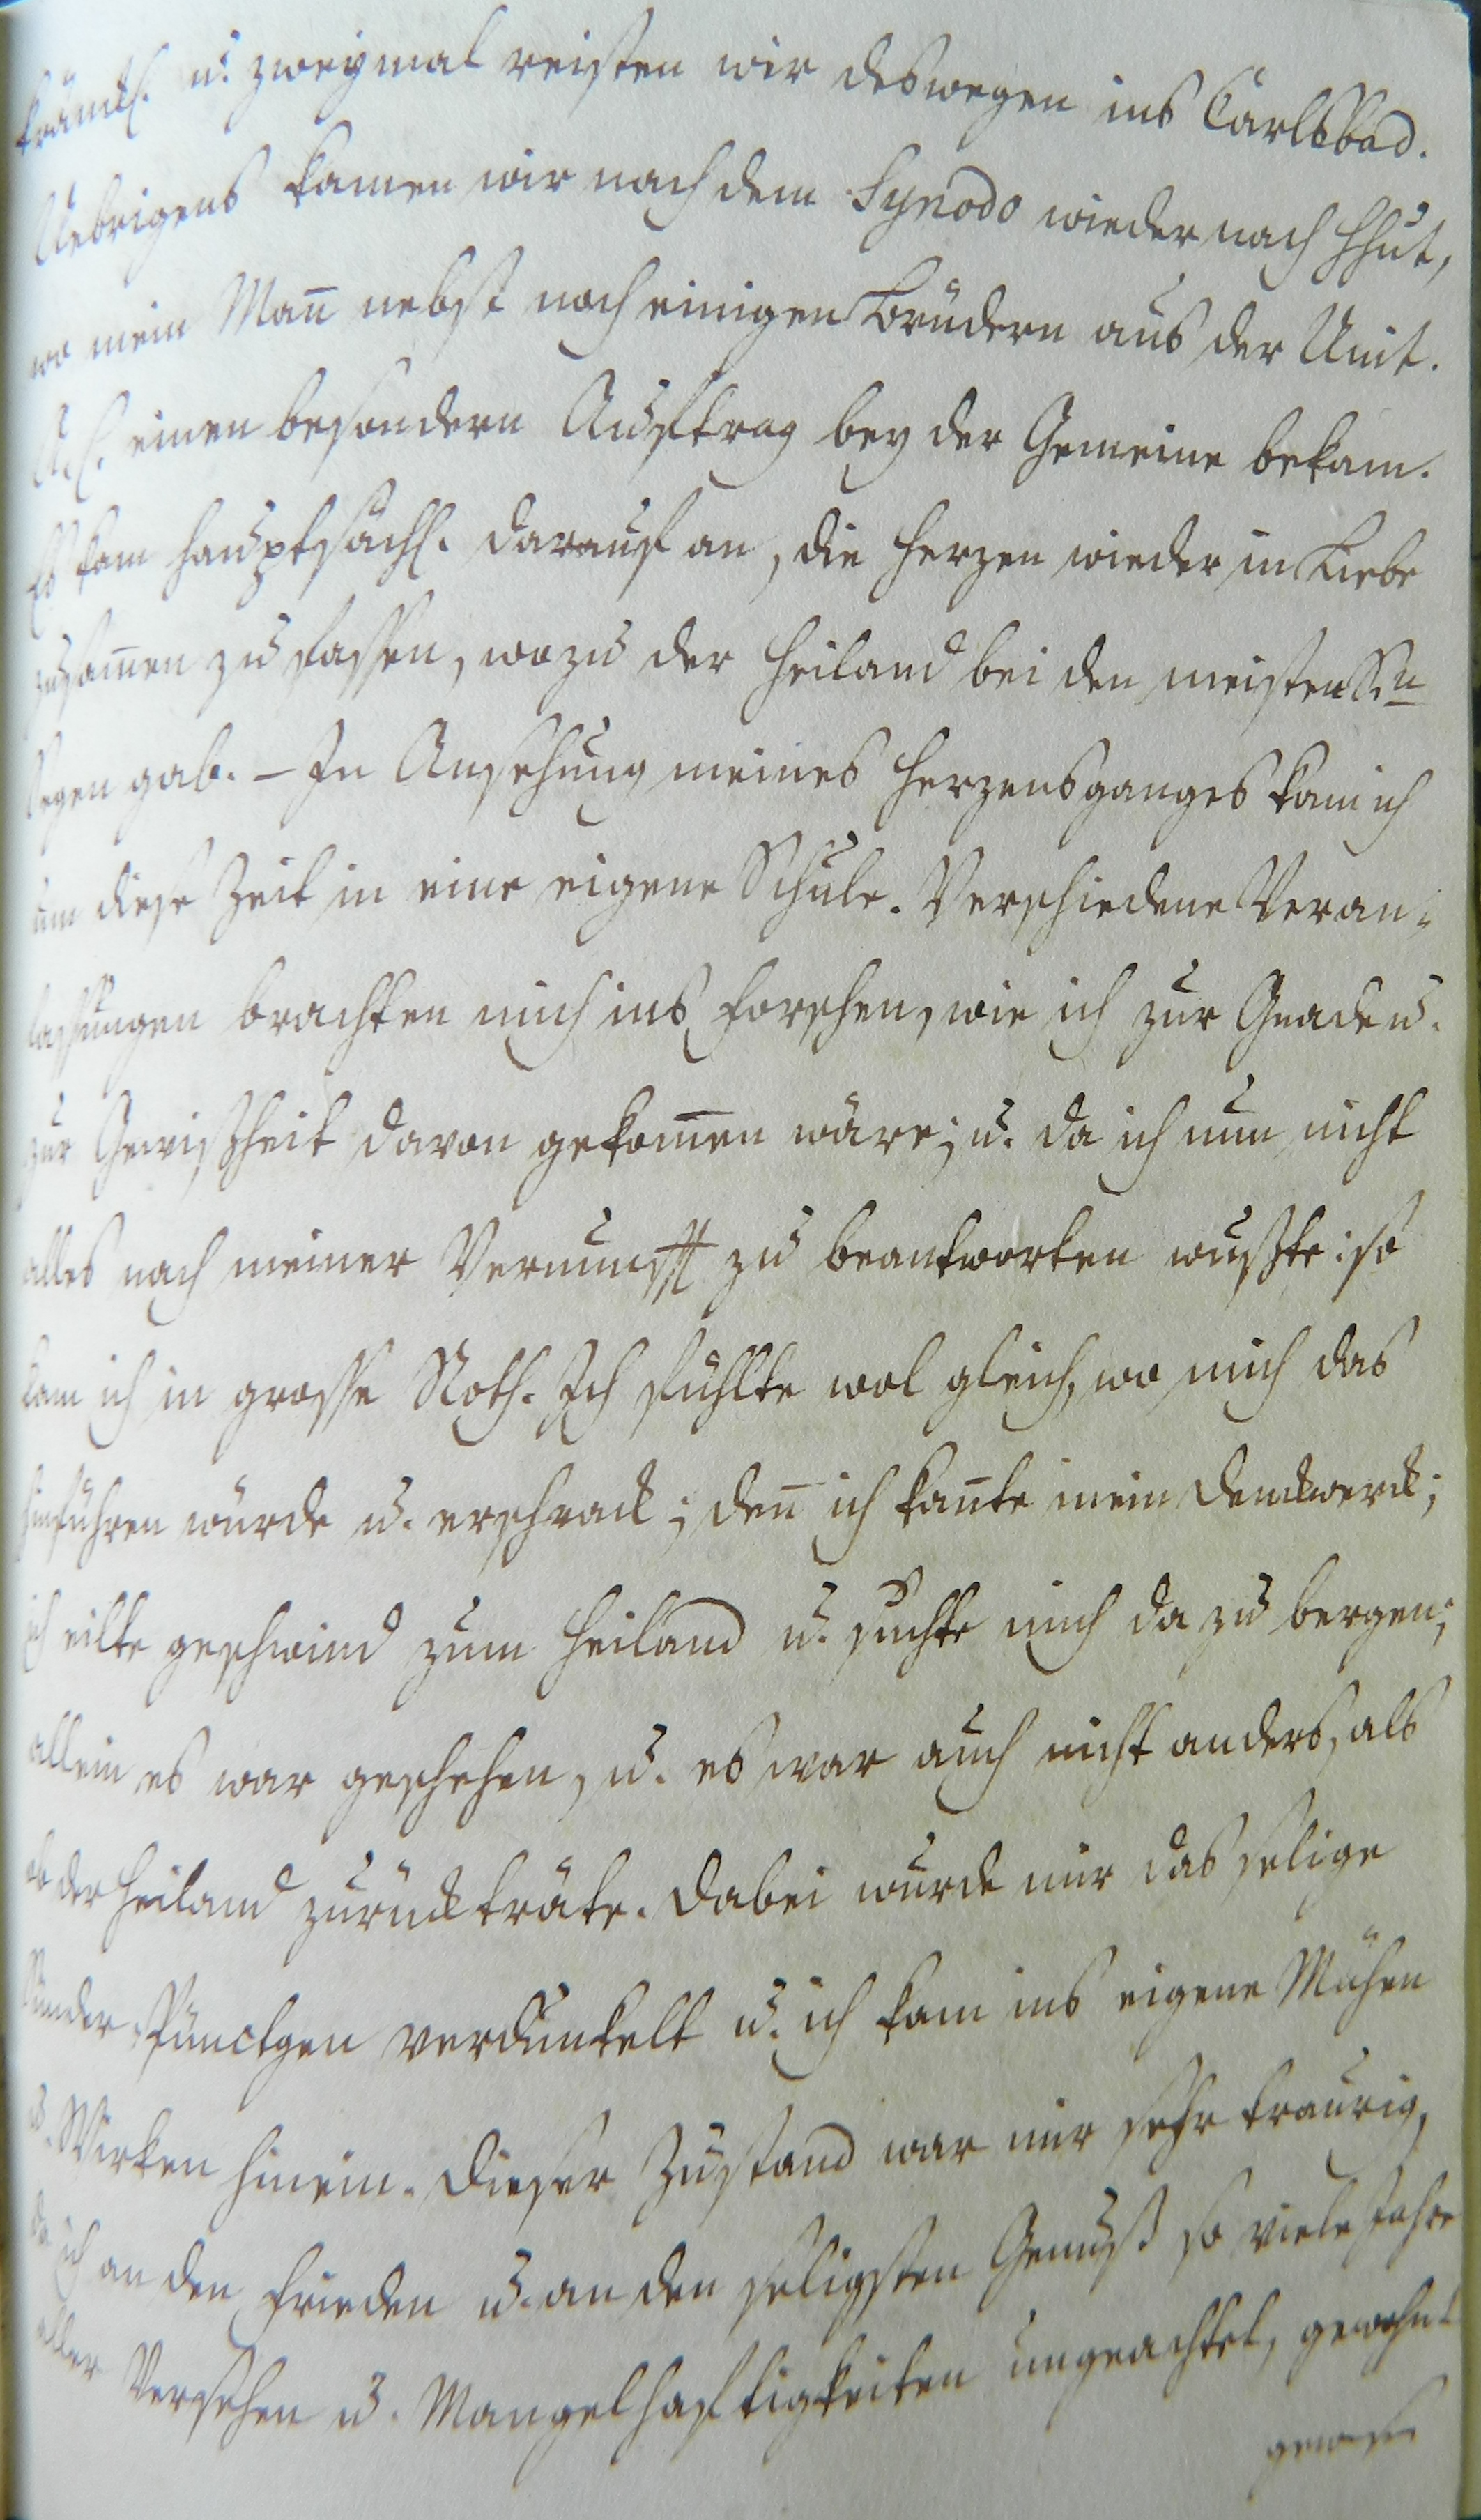 kränkl. u. zweymal reisten wir deswegen ins Carlsbad.
Uebrigens kamen wir nach dem Synodo wieder nach Hhut,
wo mein Man̄ nebst noch einigen Brüdern aus der Unit.
A. C. einen besondern Auftrag bey der Gemeine bekam.
Es kam hauptsächl. darauf an, die Herzen wieder in Liebe
zusam̄en zu fassen, wozu der Heiland bei den meisten
Segen gab. – In Ansehung meines Herzensganges kam ich
um diese Zeit in eine eigene Schule. Verschiedene Veran-
lassungen brachten mich ins Forschen, wie ich zur Gnade u.
zur Gewißheit davon gekom̄en wäre; u. da ich nun nicht
alles nach meiner Vernunft zu beantworten wußte: so
kam ich in grosse Noth. Ich fühlte wol gleich, wo mich das
hinführen würde u. erschrack; den̄ ich kan̄te mein Denckwerck;
ich eilte geschwind zum Heiland u. suchte mich da zu bergen;
allein es war geschehen, u. es war auch nicht anders, als
ob der Heiland zurückträte. Dabei wurde mir das selige
Sünder-Pünctgen verdunkelt u. ich kam ins eigene Mühen
u. Wirken hinein. Dieser Zustand war mir sehr traurig,
da ich an den Frieden u. an den seligsten Genuß so viele Jahre
aller Versehen u. Mangelhaftigkeiten ungeachtet, gewohnt
gewesen